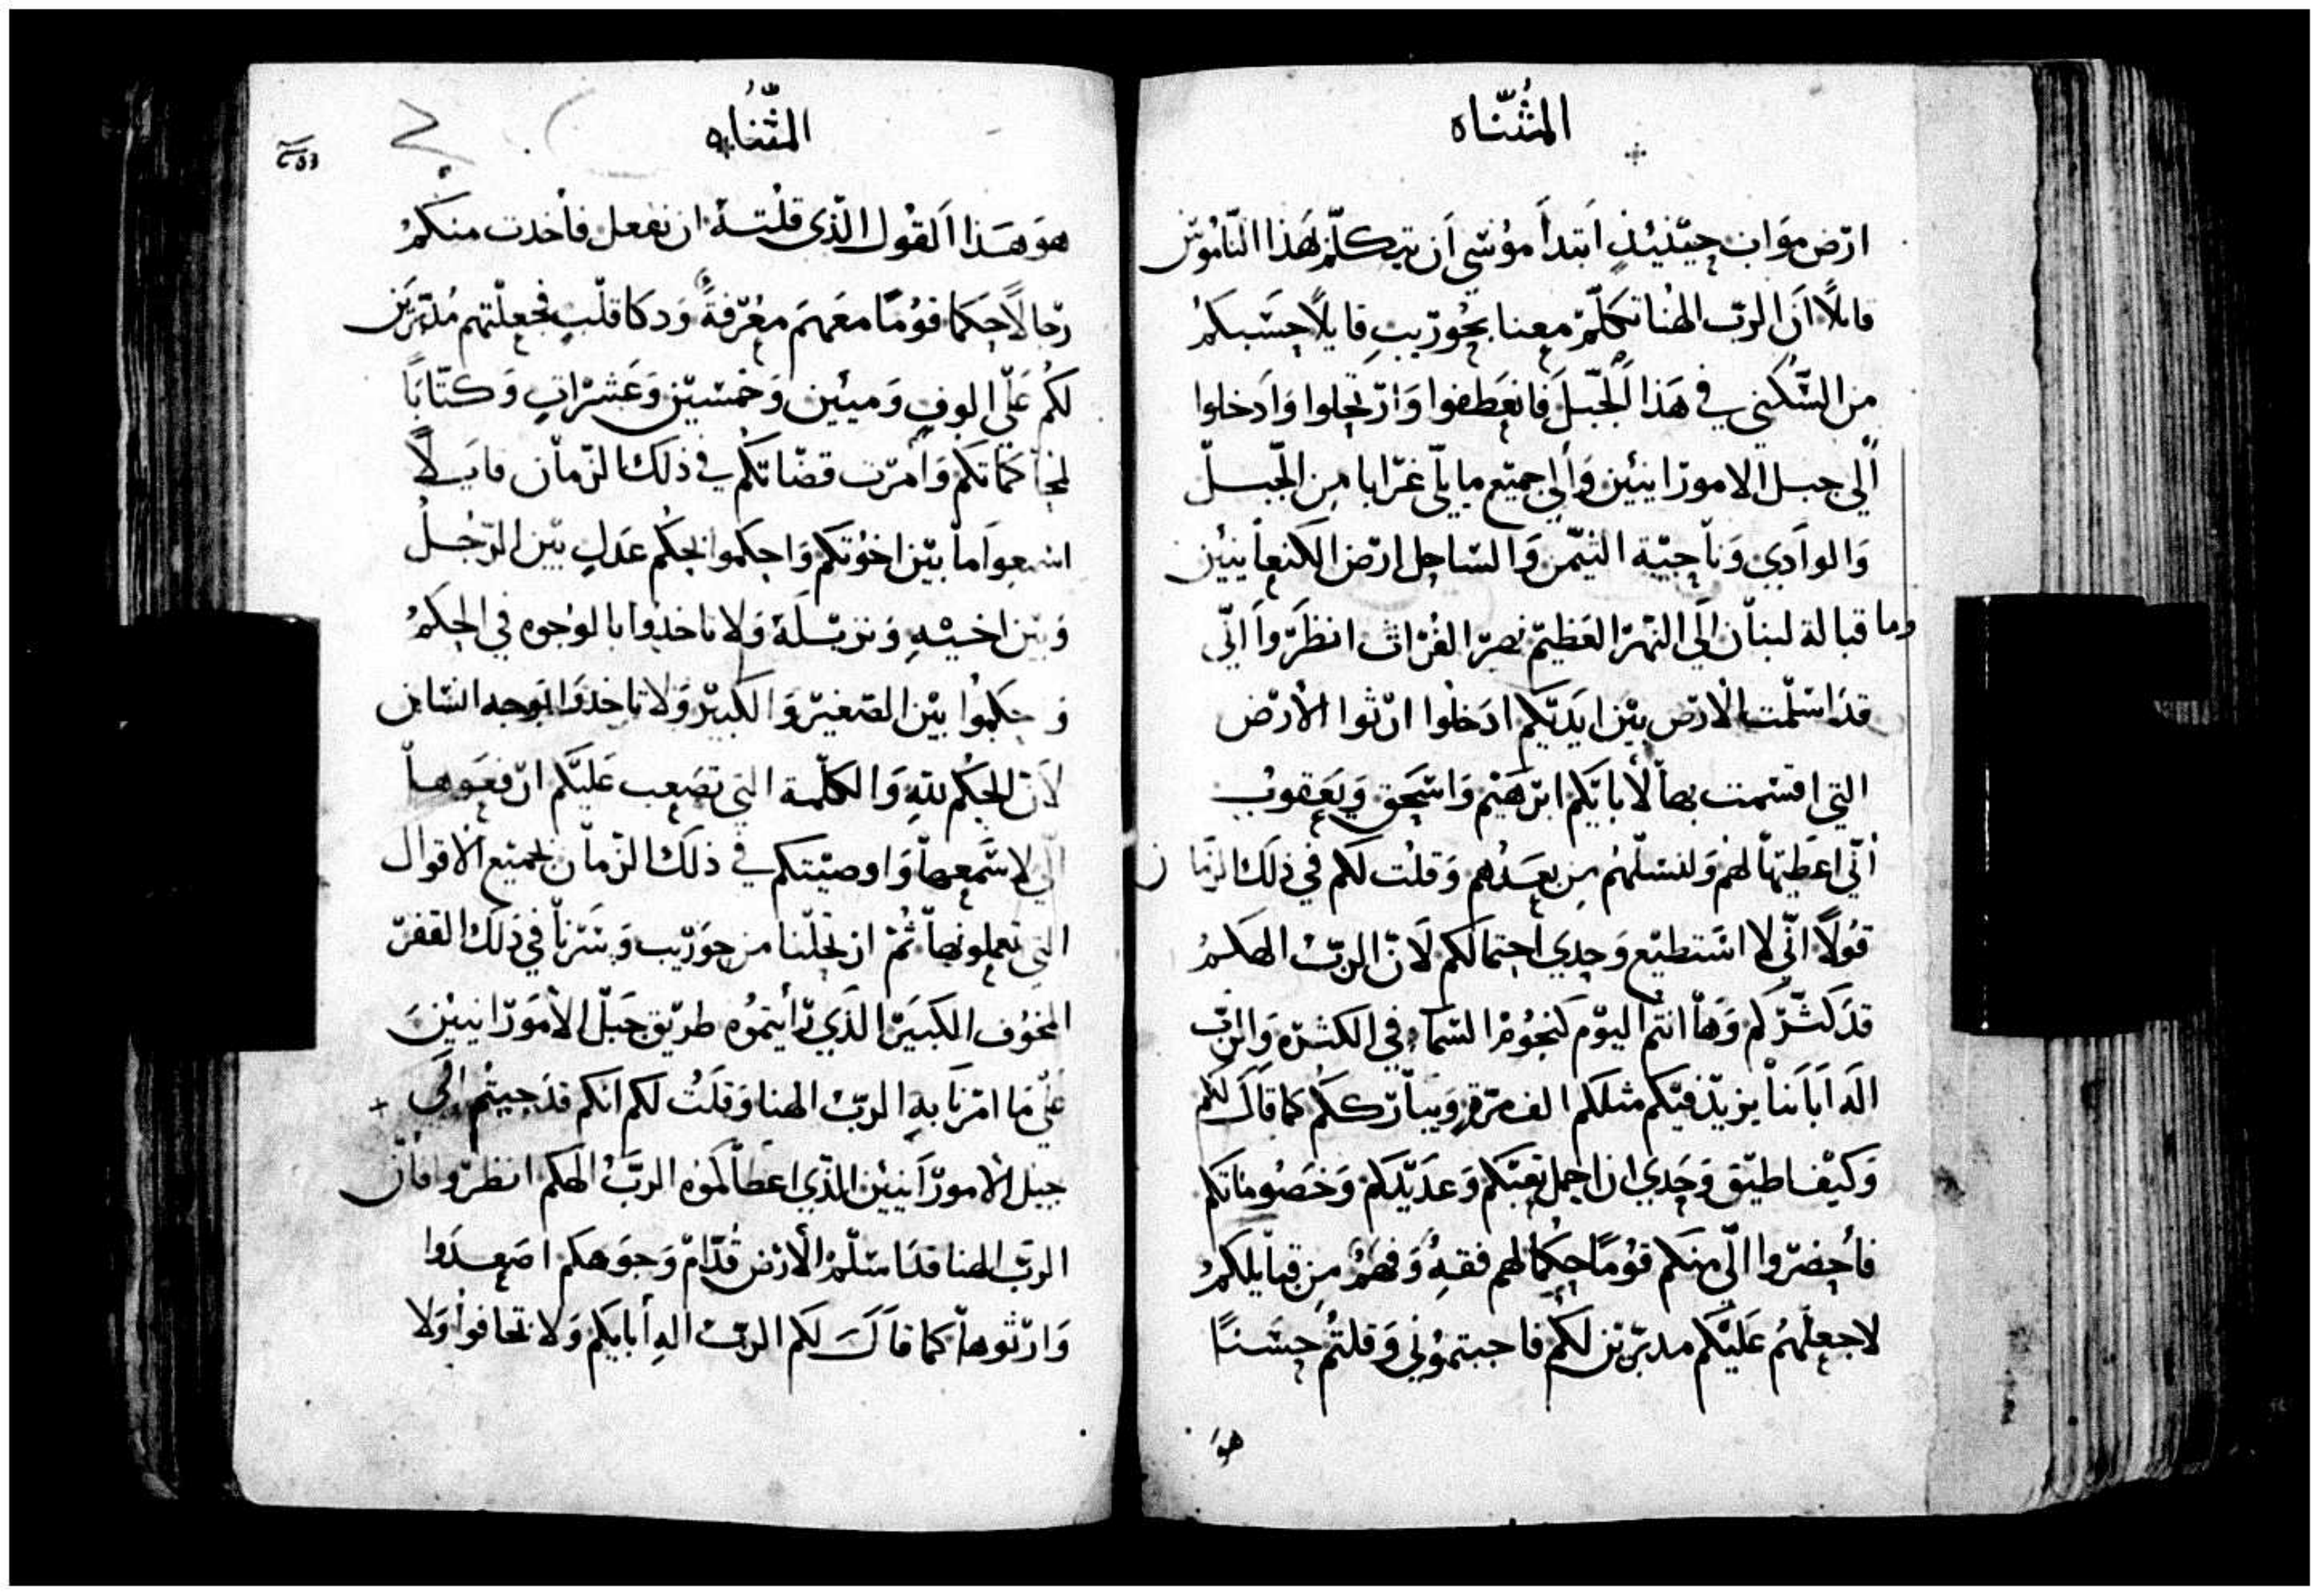 المثناه
ارض مواب حينيذ ابتدأ موسى ان يتكلم لهذا الناموس
قايلاً ان الرب الهنا تكلم معنا بحوريب قايلاً حسبكم
من السكنى في هذا الجبل فانعطفوا وارتحلوا وادخلوا
الى جبل الامورانيين والى جميع ما يلى غرابا من الجبل
والوادي وناحية التيمن والساحل ارض الكنعانيين
وما قبالة لبنان الى النهر العظيم نهر الفرات انظروا انى
قد اسلمت الارض بين ايديكم ادخلوا ارثوا الارض
التي اقسمت بها لأبايكم ابرهيم واسحق ويعقوب
أني اعطيتها لهم ولنسلهم من بعدهم وقلت لكم في ذلك الزمان
قولاً اني لا استطيع وحدي احتمالكم لان الرب الهكم
قد كثركم وها انتم اليوم كنجوم السماء في الكثره والرب
اله اباننا يزيد فيكم مثلكم الف مرة ويبارككم كما قال لكم
وكيف اطيق وحدي ان احمل تعبكم وعديدكم وخصوماتكم
فأحضروا الى منكم قوماً حكما لهم فقه وفهم من قبايلكم
لاجعلهم عليكم مدبرين لكم فاجبتموني وقلتم حسناً
هو
المثناه
هو هذا القول الذى قلته ان نفعل فأخدت منكم
رجالاً حكما قوماً معهم معرفة ودكا قلب فجعلتهم مدبرين
لكم على الوف وميئين وخمسين وعشرات وكتاباً
لمحاكماتكم وأمرت قضاتكم في ذلك الزمان قايلاً
اسمعوا ما بين اخوتكم واحكموا بحكم عدل بين الرجل
وبين اخيه ونزيله ولا تاخدوا بالوجوه في الحكم
وحكموا بين الصغير والكبير ولا تاخدوا بوجه انسان
لان الحكم لله والكلمة التي تصعب عليكم ارفعوها
الي لاسمعها واوصيتكم في ذلك الزمان بجميع الاقوال
التي تعملونها ثم ارتحلنا من حوريب وسرنا في ذلك القفر
المخوف الكبير الذي رأيتموه طريق جبل الامورانيين
على ما امرنا به الرب الهنا وقلت لكم انكم قد جيتم الى
جبل الامورانيين الذي اعطالكموه الرب الهكم انظروا فان
الرب الهنا قد اسلم الارض قدام وجوهكم اصعدوا
وارثوها كما قال لكم الرب اله أبايكم ولا تخافوا ولا